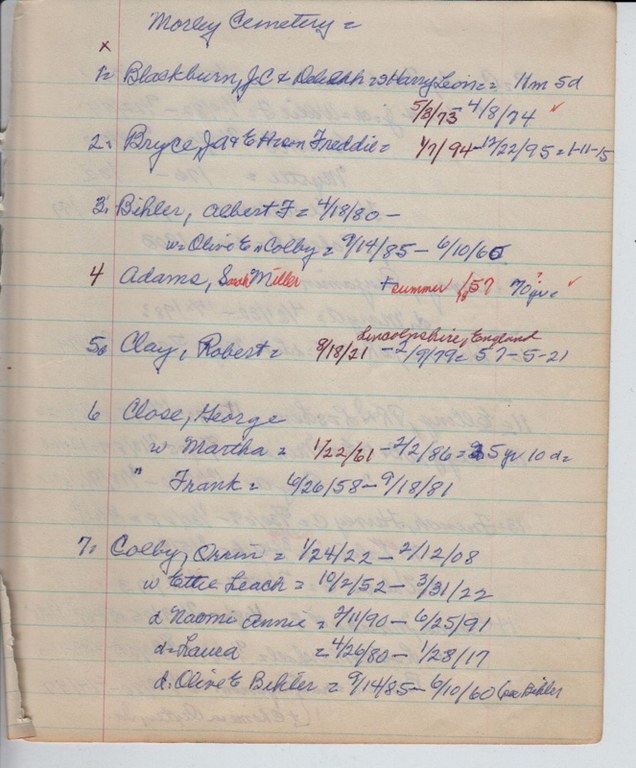 Morley Cemetery =
x
1= Blackburn, J.C & Delilah = s Harry Leon = 11m 5d
5/3/73 - 4/8/74 ✓
2. Bryce, J A & E H son Freddie = 1/7/94 - 12/22/95 = 1-11-15
3. Bihler, Albert F = 4/18/80 -
w = Olive E n Colby = 9/14/85 - 6/10/60
4 Adams, Sarah Miller + summer 1857 70 yr = ? ✓
Lincolnshire, England
5= Clay, Robert = 8/18/21 - 2/9/79 = 57-5-21
6 Close, George
w Martha = 1/22/61 - 2/2/86 = 25 yr 10 d =
" Frank = 6/26/58 - 9/18/81
7= Colby, Orrin = 1/24/22 - 2/12/08
w Ettie Leach = 10/2/52 - 3/31/22
d Naomi Annie = 2/11/90 - 6/25/91
d = Laura = 4/26/80 - 1/28/17
d. Olive E Bihler = 9/14/85 - 6/10/60 Bihler